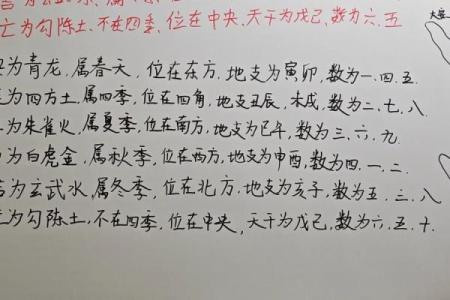 亡为勾陈土,不在四季,位在中央,天干为戊己,数为六.五
大安
为青龙,属春天,位在东方,地支为寅卯,数为一.四.五.
为四方土,属四季,位在四角,地支丑辰、未戌,数为二.七.八
为朱雀火,属夏季,位在南方,地支为巳午,数为三.六.九
为白虎金,属秋季,位在西方,地支为申酉,数为四.一.二
吉为玄武水,属冬季,位在北方,地支为亥子,数为五.三.八
亡为勾陈土,不在四季,位在中央,天干为戊己,数为六.五.十